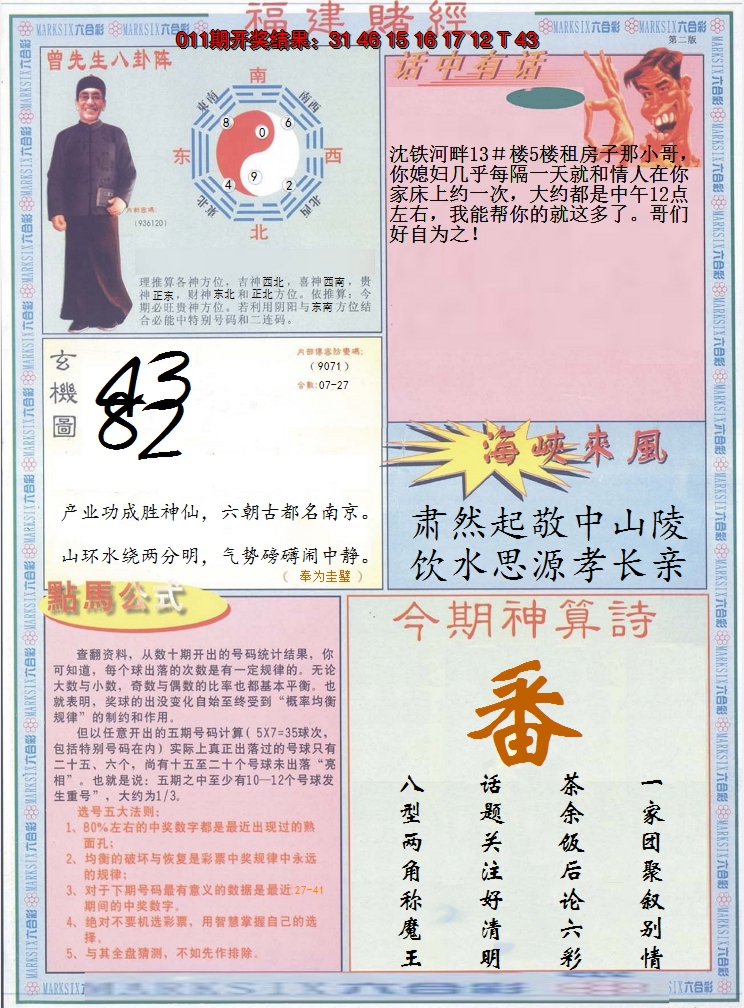 福建賭經
011期开奖结果：31 46 15 16 17 12 T 43
MARKSIX六合彩
第二版
曾先生八卦阵
南
东南
南西
8
0
6
东
西
4
9
2
東北
北西
北
内部密碼:
(936120)
理推算各神方位，吉神西北，喜神西南，贵
神正东，财神东北和正北方位。依推算：今
期必旺贵神方位。若利用阴阳与东南方位结
合必能中特别号码和二连码。
话中有话
沈铁河畔13＃楼5楼租房子那小哥，
你媳妇几乎每隔一天就和情人在你
家床上约一次，大约都是中午12点
左右，我能帮你的就这多了。哥们
好自为之！
玄機圖
43
82
内部傳密防變碼:
(9071)
合數:07-27
产业功成胜神仙，六朝古都名南京。
山环水绕两分明，气势磅礴闹中静。
（ 奉为圭璧 ）
海峽來風
肃然起敬中山陵
饮水思源孝长亲
點馬公式
查翻资料，从数十期开出的号码统计结果，你
可知道，每个球出落的次数是有一定规律的。无论
大数与小数，奇数与偶数的比率也都基本平衡。也
就表明，奖球的出没变化自始至终受到“概率均衡
规律”的制约和作用。
但以任意开出的五期号码计算( 5X7=35球次，
包括特别号码在内）实际上真正出落过的号球只有
二十五、六个，尚有十五至二十个号球未出落“亮
相”。也就是说：五期之中至少有10—12个号球发
生重号”，大约为1/3。
选号五大法则：
1、80%左右的中奖数字都是最近出现过的熟
面孔；
2、均衡的破坏与恢复是彩票中奖规律中永远
的规律；
3、对于下期号码最有意义的数据是最近27-41
期间的中奖数字。
4、绝对不要机选彩票，用智慧掌握自己的选
择。
5、与其全盘猜测，不如先作排除。
今期神算詩
番
一家团聚叙别情
茶余饭后论六彩
话题关注好清明
八型两角称魔王